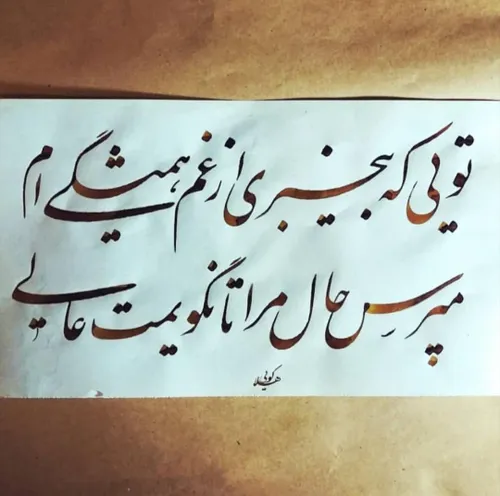 تویی که بیخبری از غم همیشگی ام
مپرس حال مرا تا نگویمت عالی